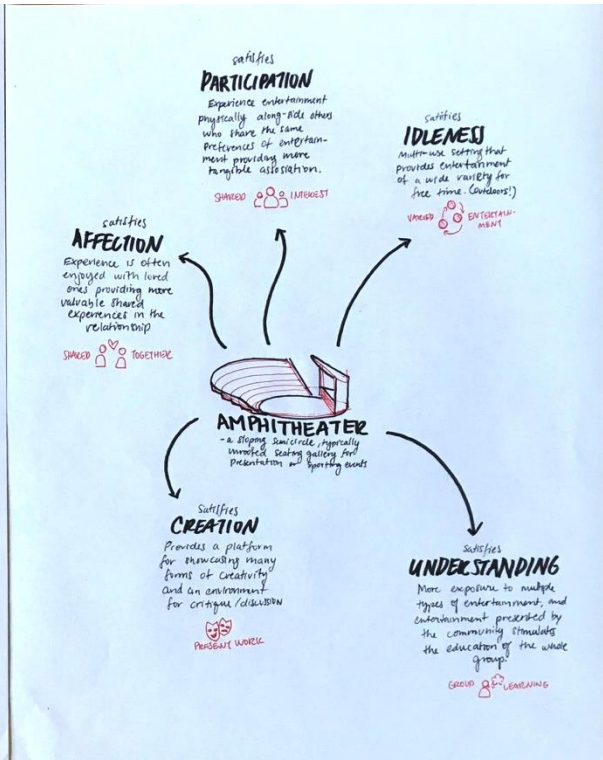 satisfies
PARTICIPATION
Experience entertainment
physically along-side others
who share the same
preferences of entertain-
ment providing more
tangible association.
SHARED INTEREST
satisfies
IDLENESS
Multi-use setting that
provides entertainment
of a wide variety for
free time. (outdoors!)
VARIED ENTERTAIN-
MENT
satisfies
AFFECTION
Experience is often
enjoyed with loved
ones providing more
valuable shared
experiences in the
relationship
SHARED TOGETHER
AMPHITHEATER
- a sloping semicircle, typically
unroofed seating gallery for
presentation or sporting events
satisfies
CREATION
Provides a platform
for showcasing many
forms of creativity
and an environment
for critique/discussion
PRESENT WORK
satisfies
UNDERSTANDING
More exposure to multiple
types of entertainment, and
entertainment presented by
the community stimulates
the education of the whole
group.
GROUP LEARNING